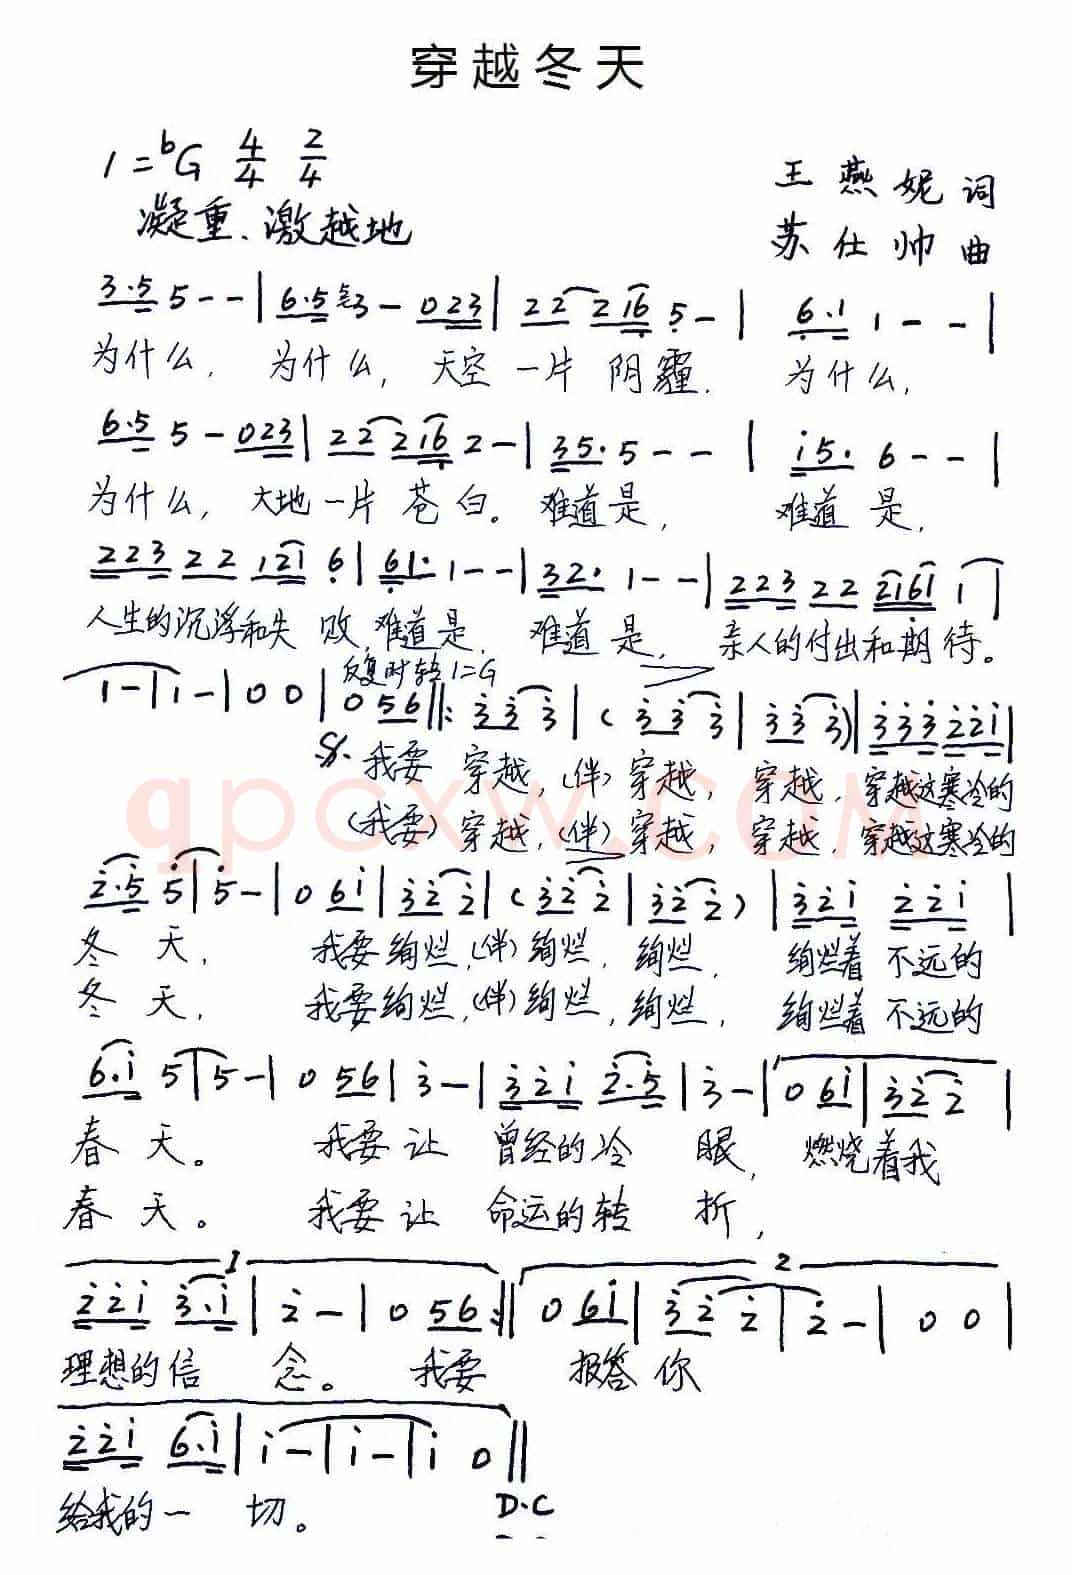 穿越冬天
1=ᵇG 4/4 2/4
王燕妮 词
凝重、激越地
苏仕帅 曲
3·5 5 - - | 6·5 3 - 0 2 3 | 2 2 2 1 6 5 - | 6·1 1 - - |
为什么, 为什么, 天空一片阴霾. 为什么,
6·5 5 - 0 2 3 | 2 2 2 1 6 2 - | 3 5· 5 - - | i 5· 6 - - |
为什么, 大地一片苍白。难道是, 难道是,
2 2 3 2 2 1 2 1 6 | 6 1· 1 - - | 3 2· 1 - - | 2 2 3 2 2 2 1 6 1 1 |
人生的沉浮和失败,难道是, 难道是, 亲人的付出和期待。
反复时转1=G
1 - | 1 - | 0 0 | 0 5 6 ‖: 3 3 3 | ( 3 3 3 | 3 3 3 ) | 3 3 3 2 2 i |
我要 穿越,(伴)穿越, 穿越, 穿越这寒冷的
(我要)穿越,(伴)穿越, 穿越, 穿越这寒冷的
2·5 5 | 5 - | 0 6 i | 3 2 2 | ( 3 2 2 | 3 2 2 ) | 3 2 i 2 2 i |
冬天, 我要绚烂,(伴)绚烂, 绚烂, 绚烂着不远的
冬天, 我要绚烂,(伴)绚烂, 绚烂, 绚烂着不远的
6·i 5 | 5 - | 0 5 6 | 3 - | 3 2 i 2·5 | 3 - | 0 6 i | 3 2 2 |
春天。 我要让 曾经的冷眼, 燃烧着我
春天。 我要让 命运的转折,
1 2
2 2 i 3·i | 2 - | 0 5 6 :‖ 0 6 i | 3 2 2 | 2 - | 0 0 |
理想的信念。 我要 报答你
2 2 i 6·i | i - | i - | i 0 ‖
给我的一切。
D·C
qpcxw.COM